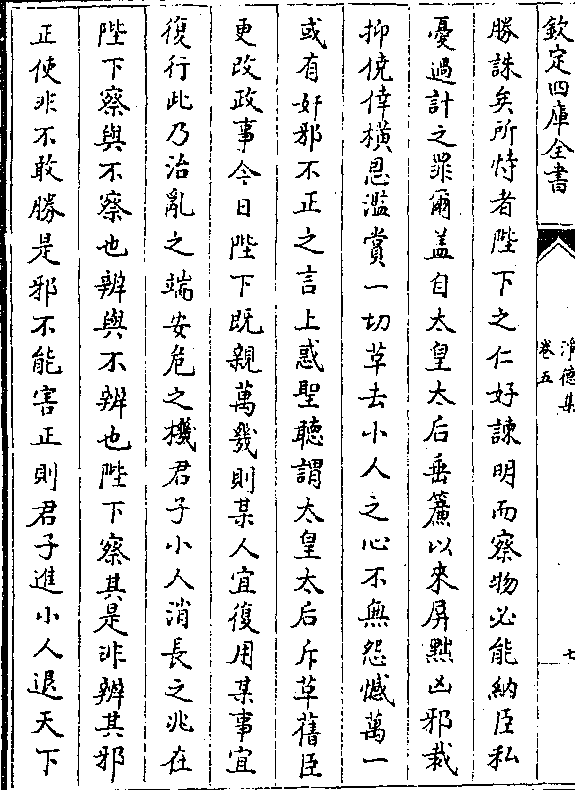 欽定四庫全書
淨德集
卷五
七
勝誅矣所恃者陛下之仁好諫明而察物必能納臣私
憂過計之罪爾蓋自太皇太后垂簾以來屏黜凶邪裁
抑僥倖橫恩濫賞一切革去小人之心不無怨憾萬一
或有奸邪不正之言上惑聖聽謂太皇太后斥革舊臣
更改政事今日陛下既親萬幾則某人宜復用某事宜
復行此乃治亂之端安危之機君子小人消長之兆在
陛下察與不察也辨與不辨也陛下察其是非辨其邪
正使非不敢勝是邪不能害正則君子進小人退天下